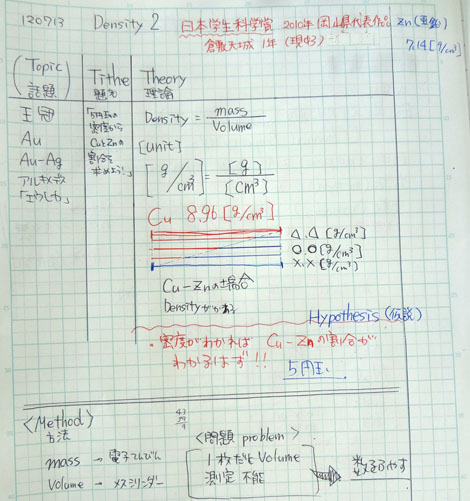 120713 Density 2 日本学生科学賞 2010年 岡山県代表作品
倉敷天城 1年 (現高3)
Zn (亜鉛)
7.14 [g/cm³]
(Topic) 話題
Tithe 題名
Theory 理論
王冠
Au
Au-Ag
アルキメデス
「エウレカ」
「5円玉の
密度から
CuとZnの
割合を
求めよう!」
Density = mass / Volume
[unit]
[g/cm³] = [g] / [cm³]
Cu 8.96 [g/cm³]
△.△ [g/cm³]
○.○ [g/cm³]
×.× [g/cm³]
Cu-Znの場合
Density
Hypothesis (仮説)
・密度がわかれば Cu-Znの割合が
わかるはず!!
5円玉
<Method>
方法
mass → 電子てんびん
Volume → メスシリンダー
<問題 problem>
1枚だと Volume
測定不能
数をふやす